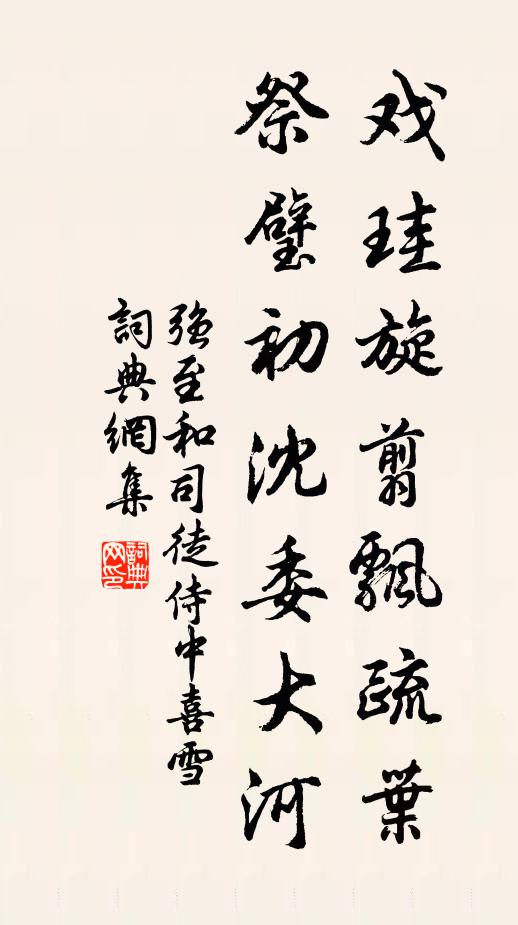 戏珪旋翦飘疏葉
祭璧初沈委大河
強至和司徒侍中喜雪
詞典網集
詞典网印